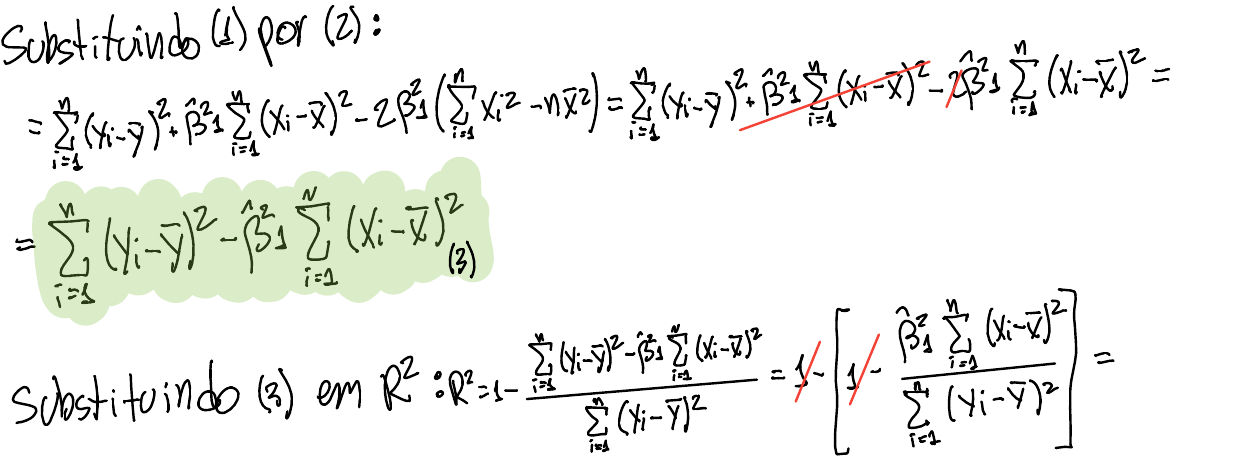 Substituindo (1) por (2):
= \sum_{i=1}^{n} (y_i - \bar{y})^2 + \hat{\beta}_1^2 \sum_{i=1}^{n} (x_i - \bar{x})^2 - 2\hat{\beta}_1^2 \left( \sum_{i=1}^{n} x_i^2 - n\bar{x}^2 \right) = \sum_{i=1}^{n} (y_i - \bar{y})^2 + \hat{\beta}_1^2 \sum_{i=1}^{n} (x_i - \bar{x})^2 - 2\hat{\beta}_1^2 \sum_{i=1}^{n} (x_i - \bar{x})^2 =
= \sum_{i=1}^{n} (y_i - \bar{y})^2 - \hat{\beta}_1^2 \sum_{i=1}^{n} (x_i - \bar{x})^2 (3)
Substituindo (3) em R^2: R^2 = 1 - \frac{\sum_{i=1}^{n} (y_i - \bar{y})^2 - \hat{\beta}_1^2 \sum_{i=1}^{n} (x_i - \bar{x})^2}{\sum_{i=1}^{n} (y_i - \bar{y})^2} = 1 - \left[ 1 - \frac{\hat{\beta}_1^2 \sum_{i=1}^{n} (x_i - \bar{x})^2}{\sum_{i=1}^{n} (y_i - \bar{y})^2} \right] =